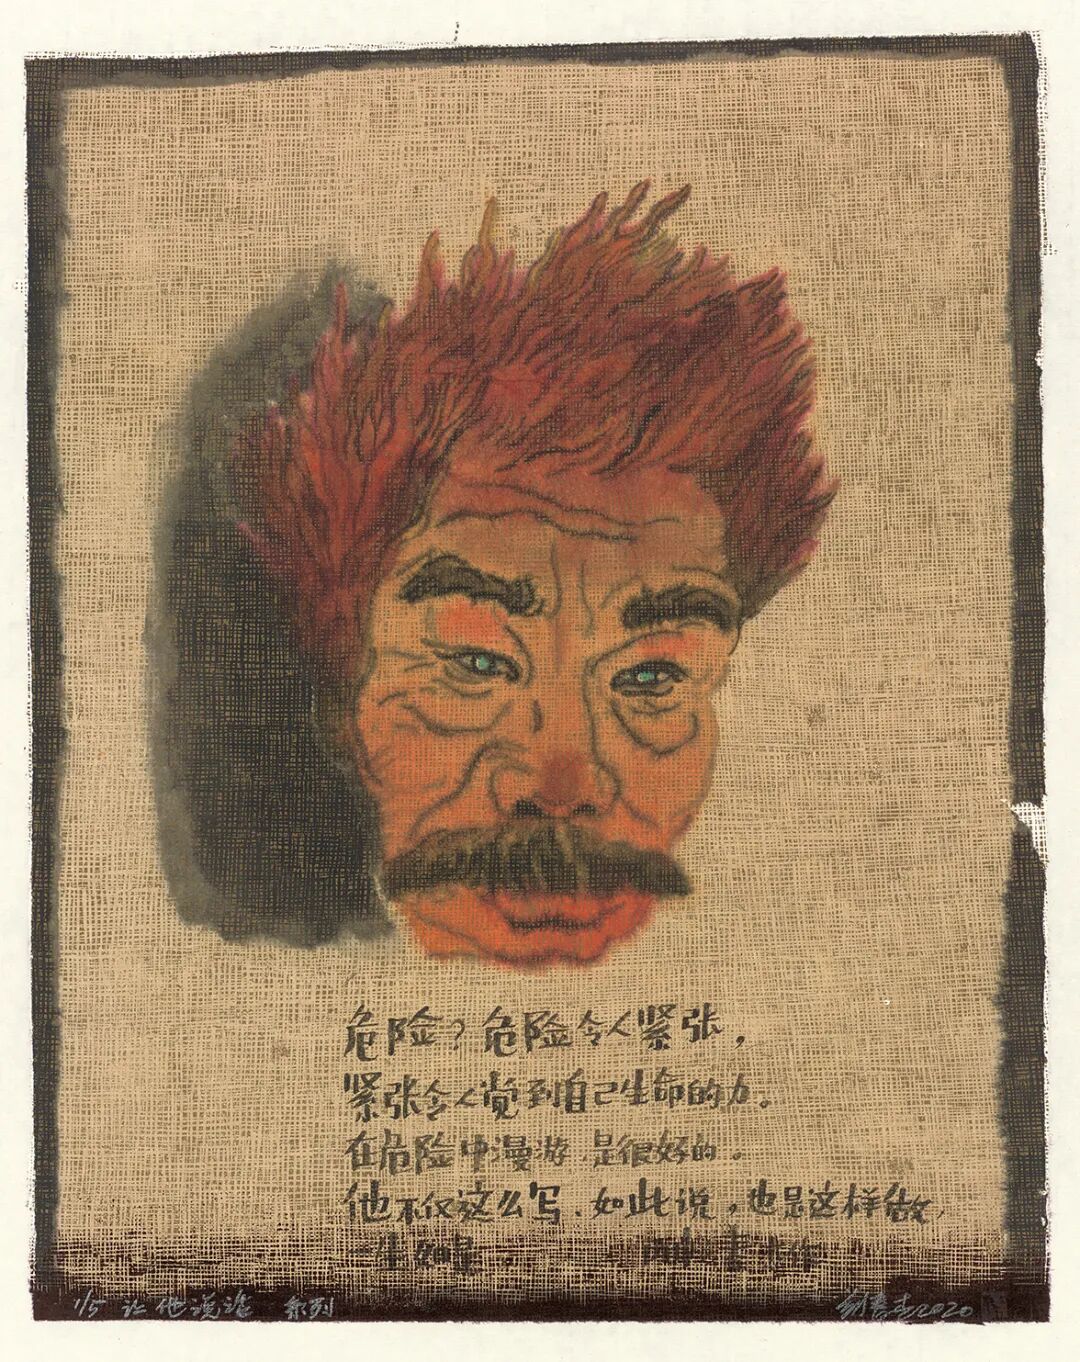 危险？危险令人紧张，
紧张令人觉到自己生命的力。
在危险中漫游，是很好的。
他不仅这么写、如此说，也是这样做，
一生如是。
1/5 让他说话 系列 2020